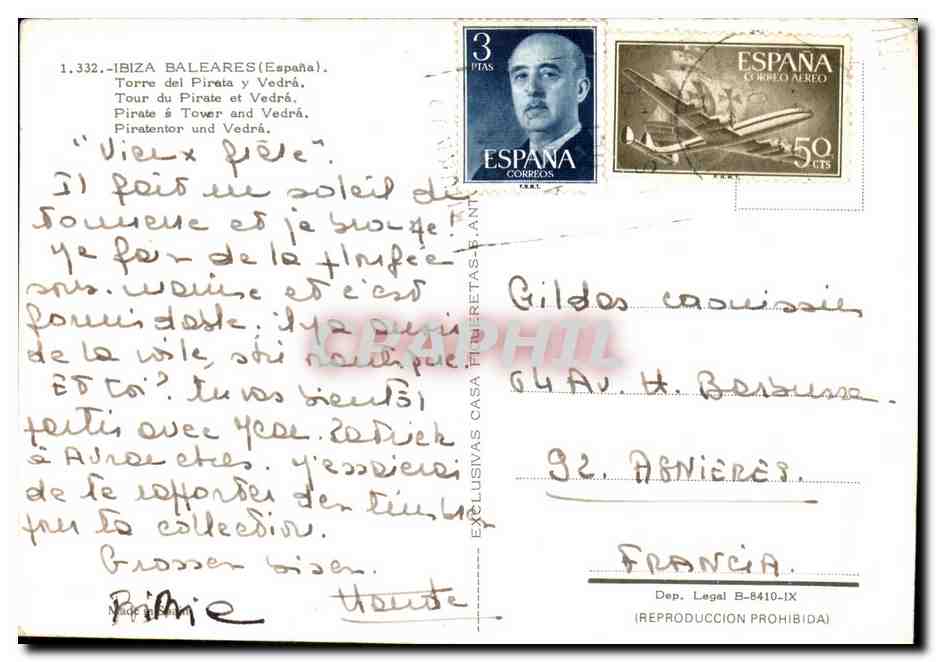 1.332.-IBIZA BALEARES (España).
Torre del Pirata y Vedrá.
Tour du Pirate et Vedrá.
Pirate ś Tower and Vedrá.
Piratentor und Vedrá.
"Vieux frère".
Il fait un soleil du
tonnerre et je bronze!
Je fais de la plongée
sous-marine et c'est
formidable. il y a aussi
de la voile, ski nautique.
Et toi? tu vas bientôt
partir avec Jean-Patrick
à Avranches. J'essaierai
de te rapporter des timbres
pour ta collection.
Grosses bises.
Made in Spain
EXCLUSIVAS CASA FIGUERETAS-S.ANT
3
PTAS
ESPAÑA
CORREOS
F.N.M.T.
ESPAÑA
CORREO AEREO
50
CTS
F.N.M.T.
CPAPHIL
Gildas
64 Av. H. Barbusse.
92. ASNIERES.
FRANCIA.
Dep. Legal B-8410-IX
(REPRODUCCION PROHIBIDA)